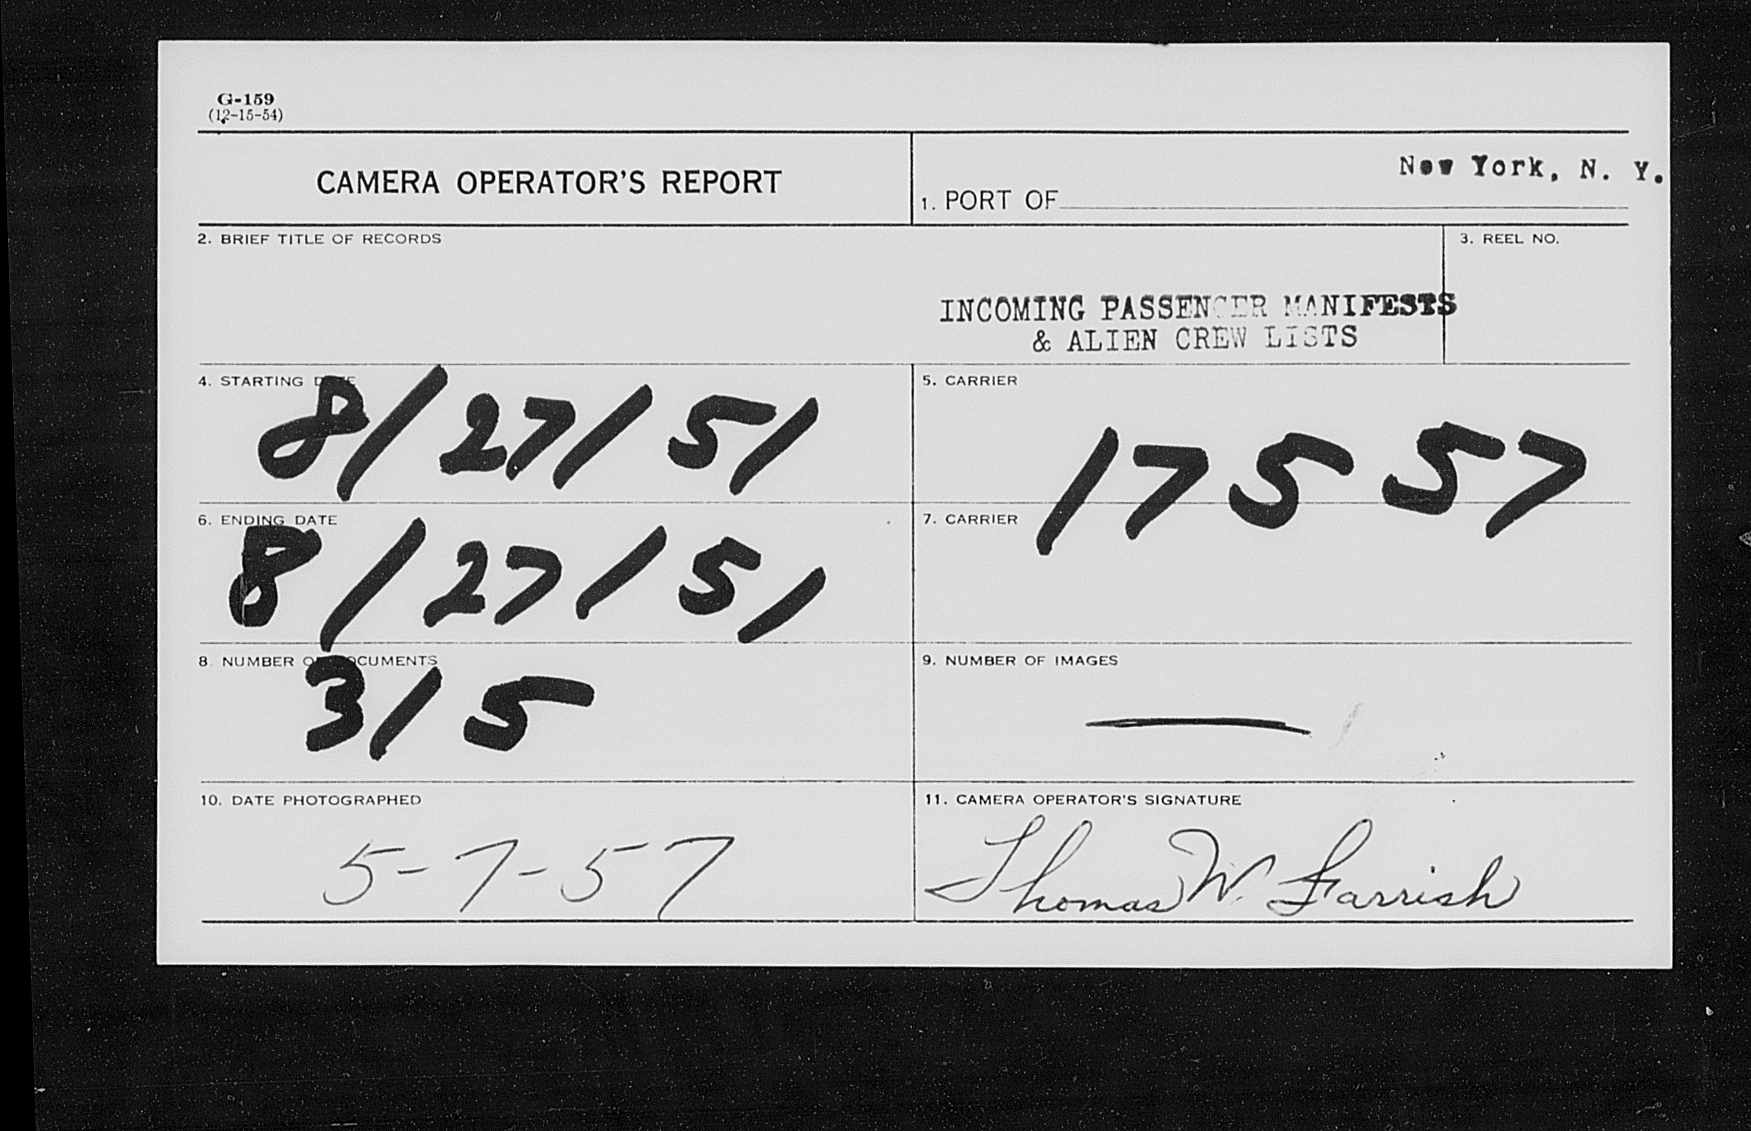 G-159
(12-15-54)
CAMERA OPERATOR'S REPORT
1. PORT OF New York, N. Y.
2. BRIEF TITLE OF RECORDS
3. REEL NO.
INCOMING PASSENGER MANIFESTS
& ALIEN CREW LISTS
4. STARTING DATE
8/27/51
5. CARRIER
17557
6. ENDING DATE
8/27/51
7. CARRIER
8. NUMBER OF DOCUMENTS
315
9. NUMBER OF IMAGES
—
10. DATE PHOTOGRAPHED
5-7-57
11. CAMERA OPERATOR'S SIGNATURE
Thomas W. Farrish